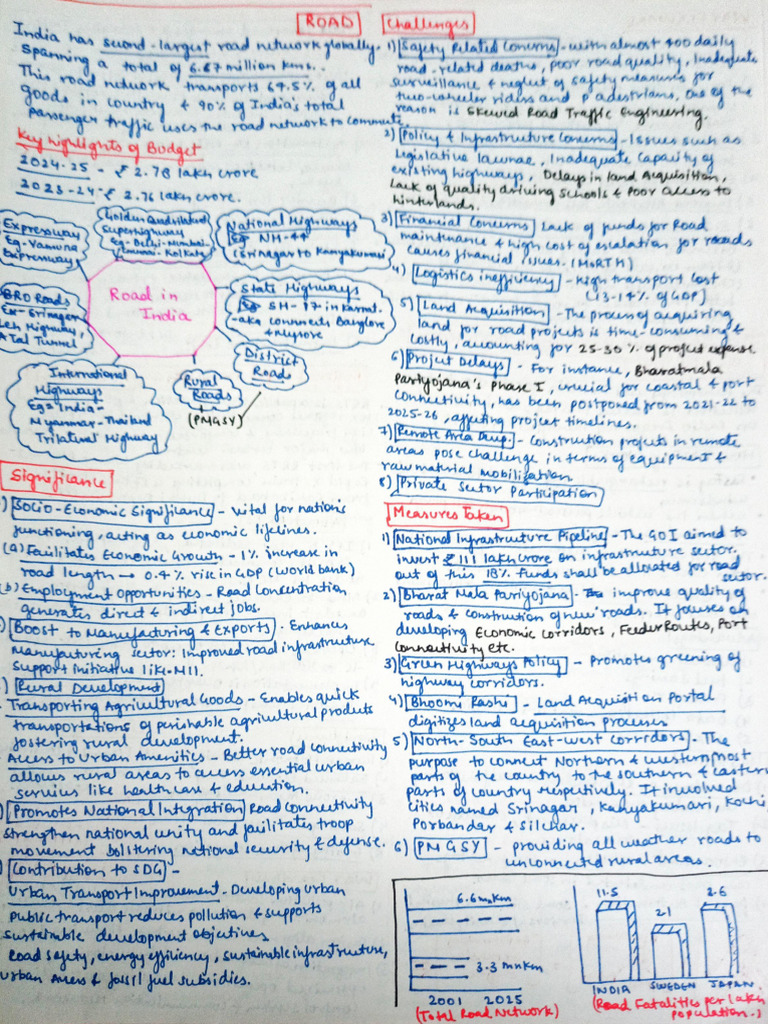 ROAD
India has second-largest road network globally
spanning a total of 6.67 million kms..
This road network transports 64.5% of all
goods in country & 90% of India's total
passenger traffic uses the road network to commute.
Key highlights of Budget
2024-25 - ₹ 2.78 lakh crore
2023-24 - ₹ 2.76 lakh crore.
Expressway
Eg-Yamuna
Expressway
Golden Quadrilateral
Superhighway
eg-Delhi-Mumbai-
Chennai-Kolkata
National Highways
Eg NH-44
(Srinagar to Kanyakumari)
BRO Roads
Ex- Srinagar
Leh Highway,
Atal Tunnel
Road in
India
State Highways
Eg SH-17 in Karnat-
-aka connects Banglore
& Mysore
District
Roads
Rural
Roads
(PMGSY)
International
Highways
Eg-India-
Myanmar-Thailand
Trilateral Highway
Significance
1) Socio-Economic Significance - Vital for nation's
functioning, acting as economic lifelines.
(a) Facilitates Economic Growth - 1% increase in
road length → 0.4% rise in GDP (World bank)
(b) Employment Opportunities - Road Construction
generates direct & indirect jobs.
) Boost to Manufacturing & Exports - Enhances
Manufacturing sector: Improved road infrastructure
Support initiative like-MII.
) Rural Development
Transporting Agricultural Goods - Enables quick
transportations of perishable agricultural products
fostering rural development.
Access to Urban Amenities - Better road connectivity
allows rural areas to access essential urban
services like healthcare & education.
) Promotes National Integration Road connectivity
strengthen national unity and facilitates troop
movement bolstering national security & defense.
) Contribution to SDG -
Urban Transport Improvement - Developing urban
public transport reduces pollution & supports
sustainable development objectives
Road safety, energy efficiency, sustainable infrastructure,
urban Access & fossil fuel subsidies.
Challenges
1) Safety Related Concerns - with almost 400 daily
road-related deaths, poor road quality, Inadequate
surveillance & neglect of safety measures for
two-wheeler riders and pedestrians, One of the
reason is Skewed Road Traffic Engineering.
2) Policy & Infrastructure Concerns - Issues such as
Legislative lacunae, Inadequate Capacity of
existing highways, Delays in land Acquisition,
Lack of quality driving Schools & Poor access to
hinterlands.
3) Financial Concerns Lack of funds for Road
maintenance & high cost of escalation for roads
causes financial issues. (MoRTH)
4) Logistics inefficiency - high transport Cost
(13-14% of GDP)
5) Land Acquisition - The process of acquiring
land for road projects is time-consuming &
costly, accounting for 25-30% of project expense
6) Project Delays - For instance, Bharatmala
Pariyojana's phase I, crucial for coastal & port
connectivity, has been postponed from 2021-22 to
2025-26, affecting project timelines.
7) Remote Area Devp. - Construction projects in remote
areas pose challenge in terms of equipment &
raw material mobilization
8) Private Sector Participation
Measures Taken
1) National Infrastructure Pipeline - The GOI aimed to
invest ₹ 111 lakh crore on infrastructure sector.
out of this 18% funds shall be allocated for road
sector.
2) Bharat Mala Pariyojana - improve quality of
roads & construction of new roads. It focuses on
developing Economic Corridors, Feeder Routes, Port
Connectivity etc.
3) Green Highways Policy - Promotes greening of
highway corridors.
4) Bhoomi Rashi - Land Acquisition Portal
digitizes land acquisition processes
5) North-South East-West Corridors - The
purpose to connect Northern & westernmost
parts of the country to the southern & eastern
parts of country respectively. It involved
cities named Srinagar, Kanyakumari, Kochi,
Porbandar & Silchar.
6) PMGSY - providing all weather roads to
unconnected rural areas.
6.6 mn km
3.3 mn km
2001 2025
(Total Road Network)
1.5
2.1
2.6
INDIA SWEDEN JAPAN
(Road Fatalities per lakh
population.)